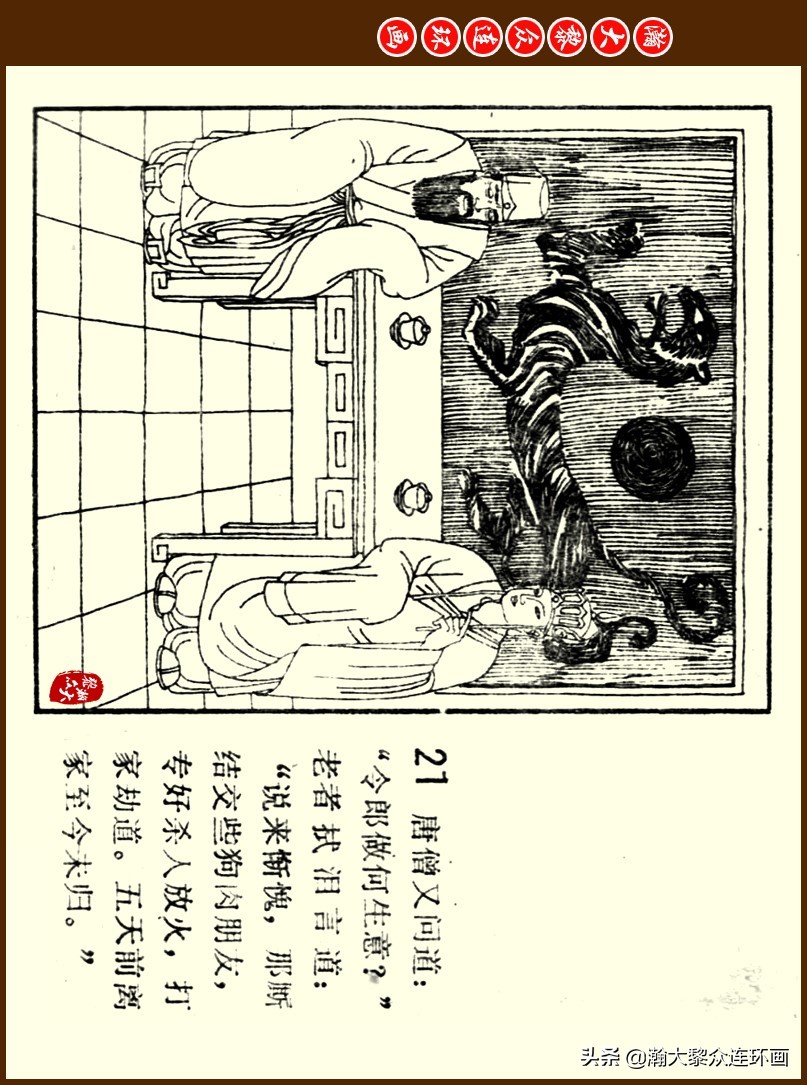 瀚大黎众连环画
21 唐僧又问道：
“令郎做何生意？”
老者拭泪言道：
“说来惭愧，那厮
结交些狗肉朋友，
专好杀人放火，打
家劫道。五天前离
家至今未归。”
头条 @瀚大黎众连环画